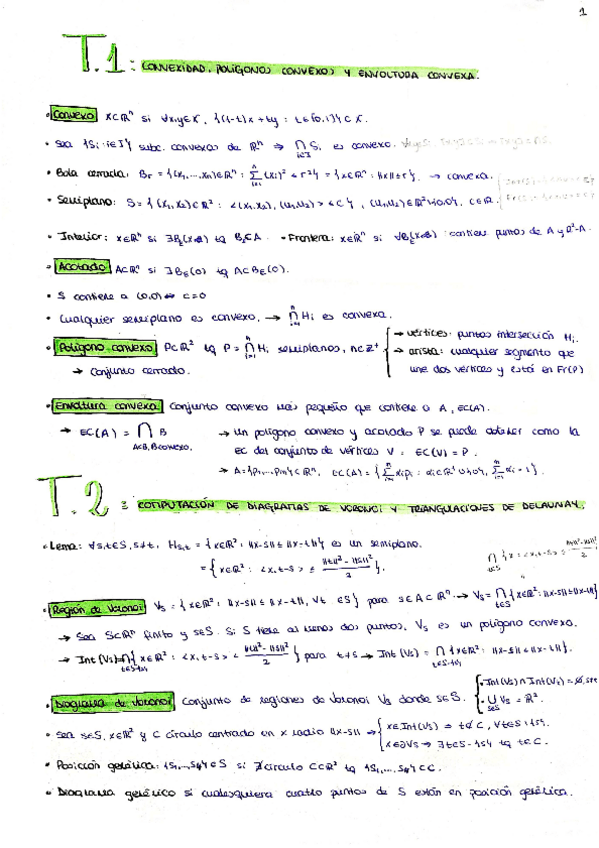 1
T.1: CONVEXIDAD, POLÍGONOS CONVEXOS Y ENVOLTURA CONVEXA.
• Convexo X⊂ℝⁿ si ∀x,y∈X, {(1-t)x + ty : t∈[0,1]} ⊂ X.
• Sea {Si : i∈I} subc. convexos de ℝⁿ ⇒ ⋂_{i∈I} Si es convexo.
• Bola cerrada: Br = {(x₁,...,xn)∈ℝⁿ : Σ_{i=1}^n (xi)² ≤ r²} = {x∈ℝⁿ : ||x|| ≤ r}. → convexa.
• Semiplano: S = {(x₁,x₂)∈ℝ² : <(x₁,x₂), (u₁,u₂)> ≤ c}, (u₁,u₂)∈ℝ²\{0,0}, c∈ℝ.
• Interior: x∈ℝⁿ si ∃Bε(x) tq Bε⊂A. • Frontera: x∈ℝⁿ si ∀Bε(x) contiene puntos de A y ℝ²-A.
• Acotado A⊂ℝⁿ si ∃Bε(0) tq A⊂Bε(0).
• S contiene a (0,0) ⇔ c=0
• Cualquier semiplano es convexo. → ⋂_{i=1}^n Hi es convexa.
• Polígono convexo P⊂ℝ² tq P = ⋂_{i=1}^n Hi semiplanos, n∈ℤ⁺ → vértices: puntos intersección Hi.
→ arista: cualquier segmento que
→ Conjunto cerrado. une dos vértices y está en Fr(P)
• Envoltura convexa Conjunto convexo más pequeño que contiene a A, EC(A).
→ EC(A) = ⋂_{A⊂B, B convexo} B → Un polígono convexo y acotado P se puede obtener como la
EC del conjunto de vértices V : EC(V) = P.
→ A={p₁,...pm}⊂ℝⁿ, EC(A) = {Σ_{i=1}^n αipi : αi∈ℝ⁺∪{0}, Σ_{i=1}^n αi = 1}.
T.2: COMPUTACIÓN DE DIAGRAMAS DE VORONOI Y TRIANGULACIONES DE DELAUNAY.
• Lema: ∀s,t∈S, s≠t, Hs,t = {x∈ℝ² : ||x-s|| ≤ ||x-t||} es un semiplano.
= {x∈ℝ² : <x,t-s> ≤ (||t||² - ||s||²)/2}.
• Región de Voronoi Vs = {x∈ℝ² : ||x-s|| ≤ ||x-t||, ∀t∈S} para s∈A⊂ℝⁿ → Vs = ⋂_{t∈S} {x∈ℝ² : ||x-s|| ≤ ||x-t||}
→ Sea S⊂ℝⁿ finito y s∈S. Si S tiene al menos dos puntos, Vs es un polígono convexo.
→ Int(Vs) = ⋂_{t∈S-{s}} {x∈ℝ² : <x,t-s> < (||t||² - ||s||²)/2} para t≠s → Int(Vs) = ⋂_{t∈S-{s}} {x∈ℝ² : ||x-s|| < ||x-t||}.
• Diagrama de Voronoi Conjunto de regiones de Voronoi Vs donde s∈S. • Int(Vs) ∩ Int(Vt) = ∅, s≠t
• ⋃_{s∈S} Vs = ℝ².
• Sea s∈S, x∈ℝ² y C círculo centrado en x radio ||x-s|| → x∈Int(Vs) ⇒ t∉C, ∀t∈S\{s}.
x∈∂Vs ⇒ ∃t∈S-{s} tq t∈C.
• Posición genérica: {s₁,...,s₄}∈S si ∄círculo C⊂ℝ² tq {s₁,...,s₄}⊂C.
• Diagrama genérico si cualesquiera cuatro puntos de S están en posición genérica.